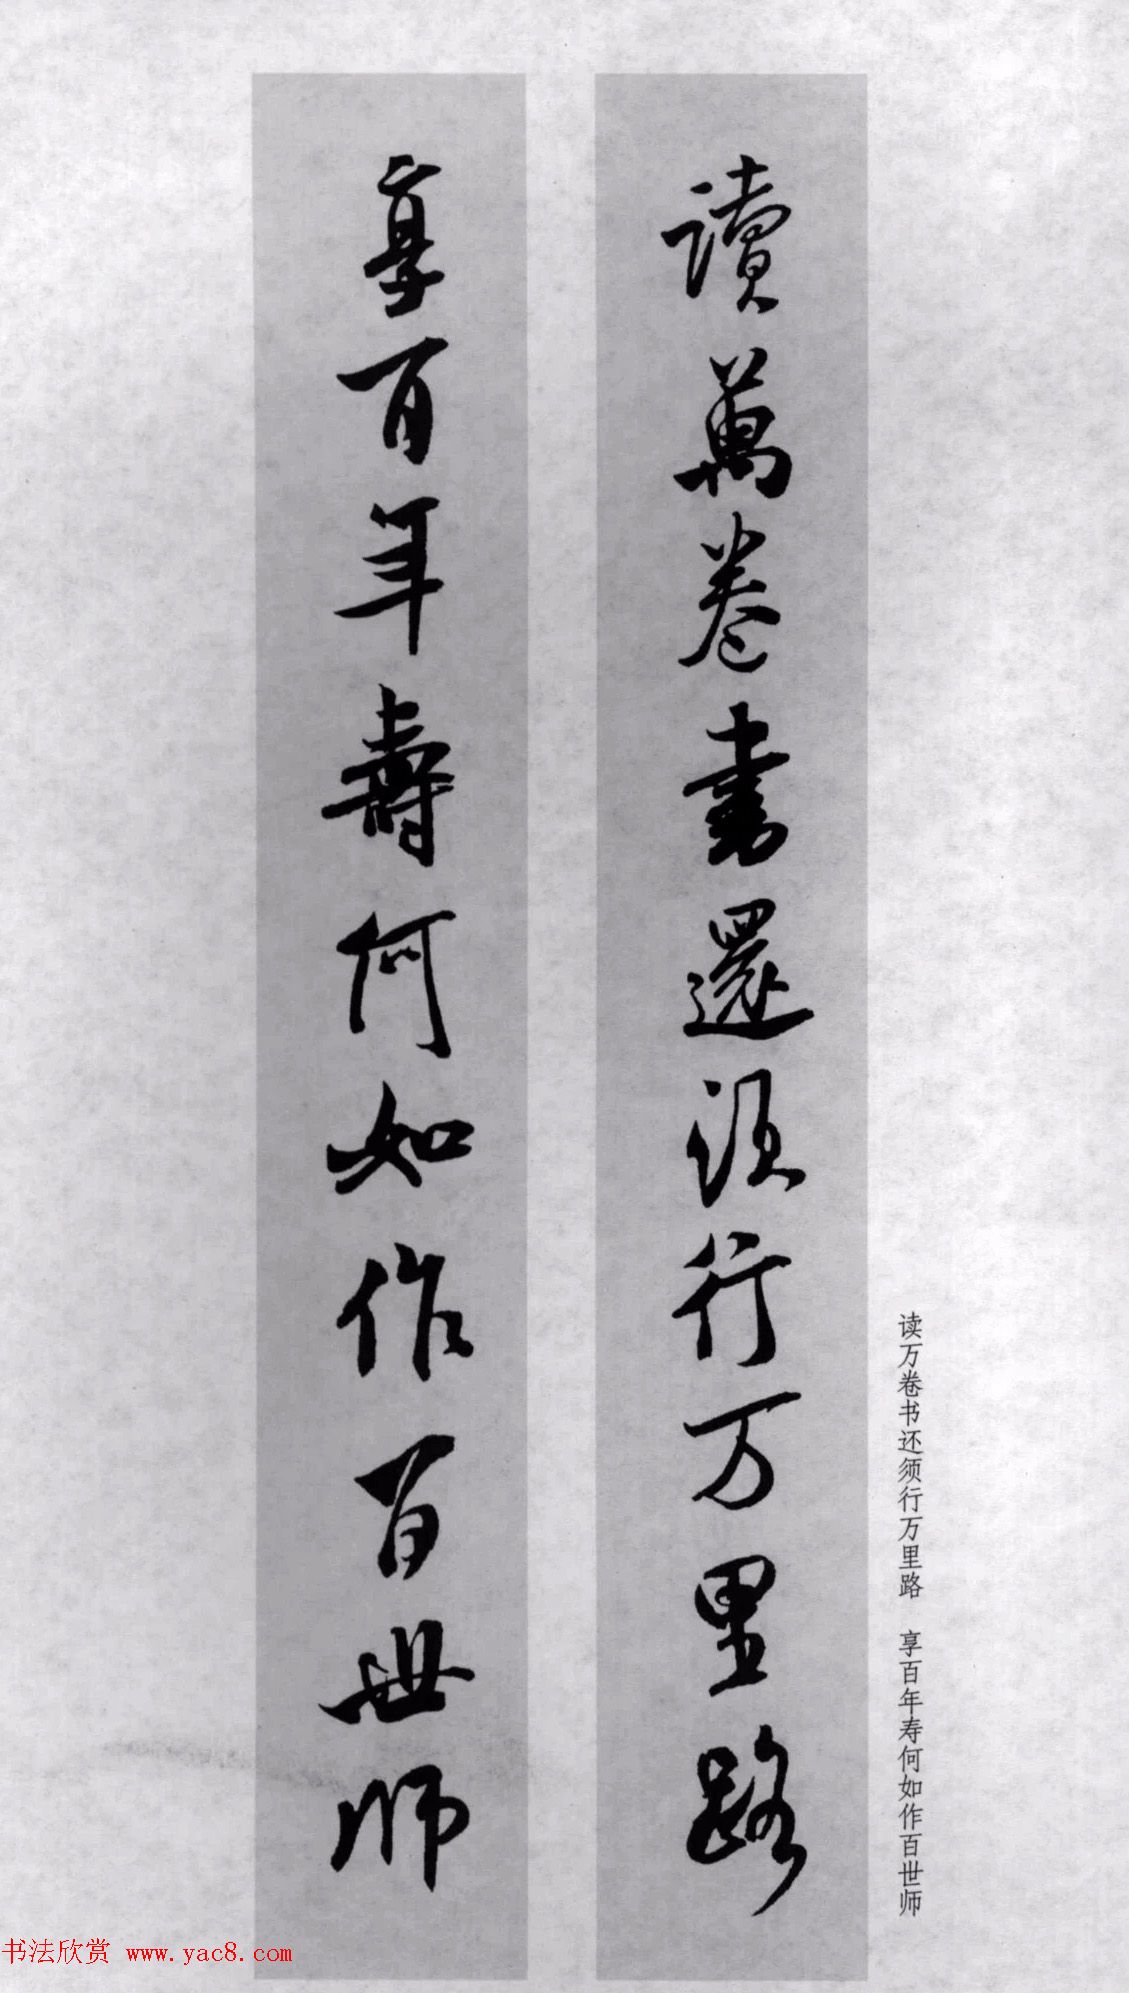 讀萬卷書還須行万里路
享百年壽何如作百世師
读万卷书还须行万里路 享百年寿何如作百世师
书法欣赏 www.yac8.com